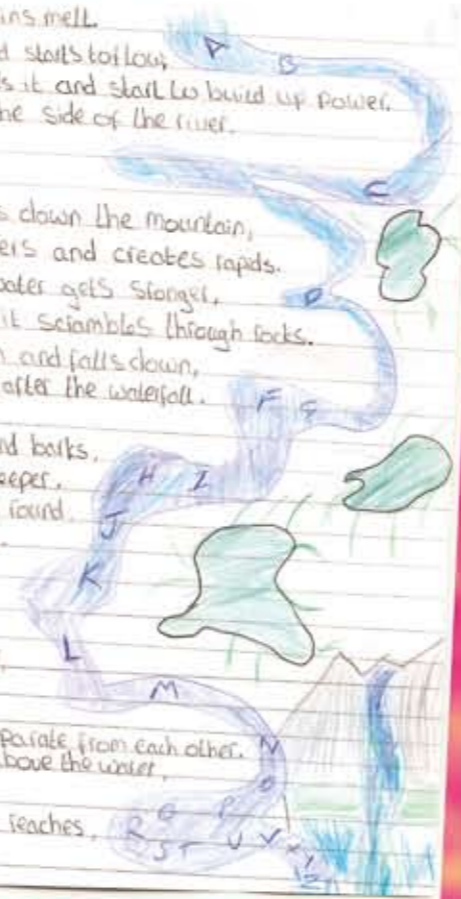 ins melt.
d starts to flow,
s it and start to build up power.
he side of the river.
s down the mountain,
ers and creates rapids.
water gets stonger,
it scrambles through rocks.
n and falls down,
after the waterfall.
nd barks,
eeper.
round.
parate from each other.
bove the water,
reaches,
A B
C
D
F G
H I
J
K
L
M
N
O
R Q P
S T U V
X Y
Z